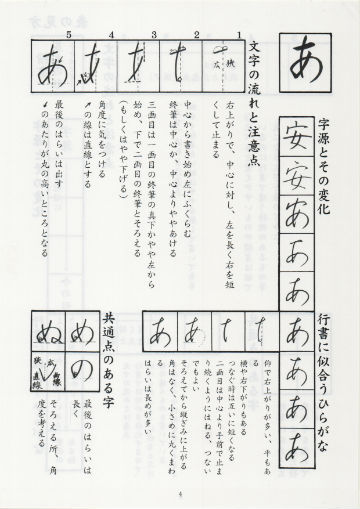 あ
字源とその変化
安
安
あ
あ
あ
行書に似合うひらがな
あ
あ
あ
文字の流れと注意点
1
2
3
4
5
狭
広
あ
右上がりで、中心に対し、左を長く右を短
くして止まる
中心から書き始め左にふくらむ
終筆は中心か、中心よりややあける
三画目は一画目の終筆の真下かやや左から
始め、下で二画目の終筆とそろえる
(もしくはやや下げる)
角度に気をつける
↗の線は直線とする
最後のはらいは出す
↙のあたりが丸の高いところとなる
あ
あ
仰で右上がりが多い、平もあ
横や右下がりもある
つなぐ時は互いに短くなる
二画目は中心より手前で止ま
り続くようにはねる、つない
でもよい
そろえてから縦ぎみに上がる
角はなく、小さめに丸くまわ
はらいは長めが多い
共通点のある字
め
の
ぬ
広
曲線
狭
直線
最後のはらいは
長く
そろえる所、角
度を考える
4